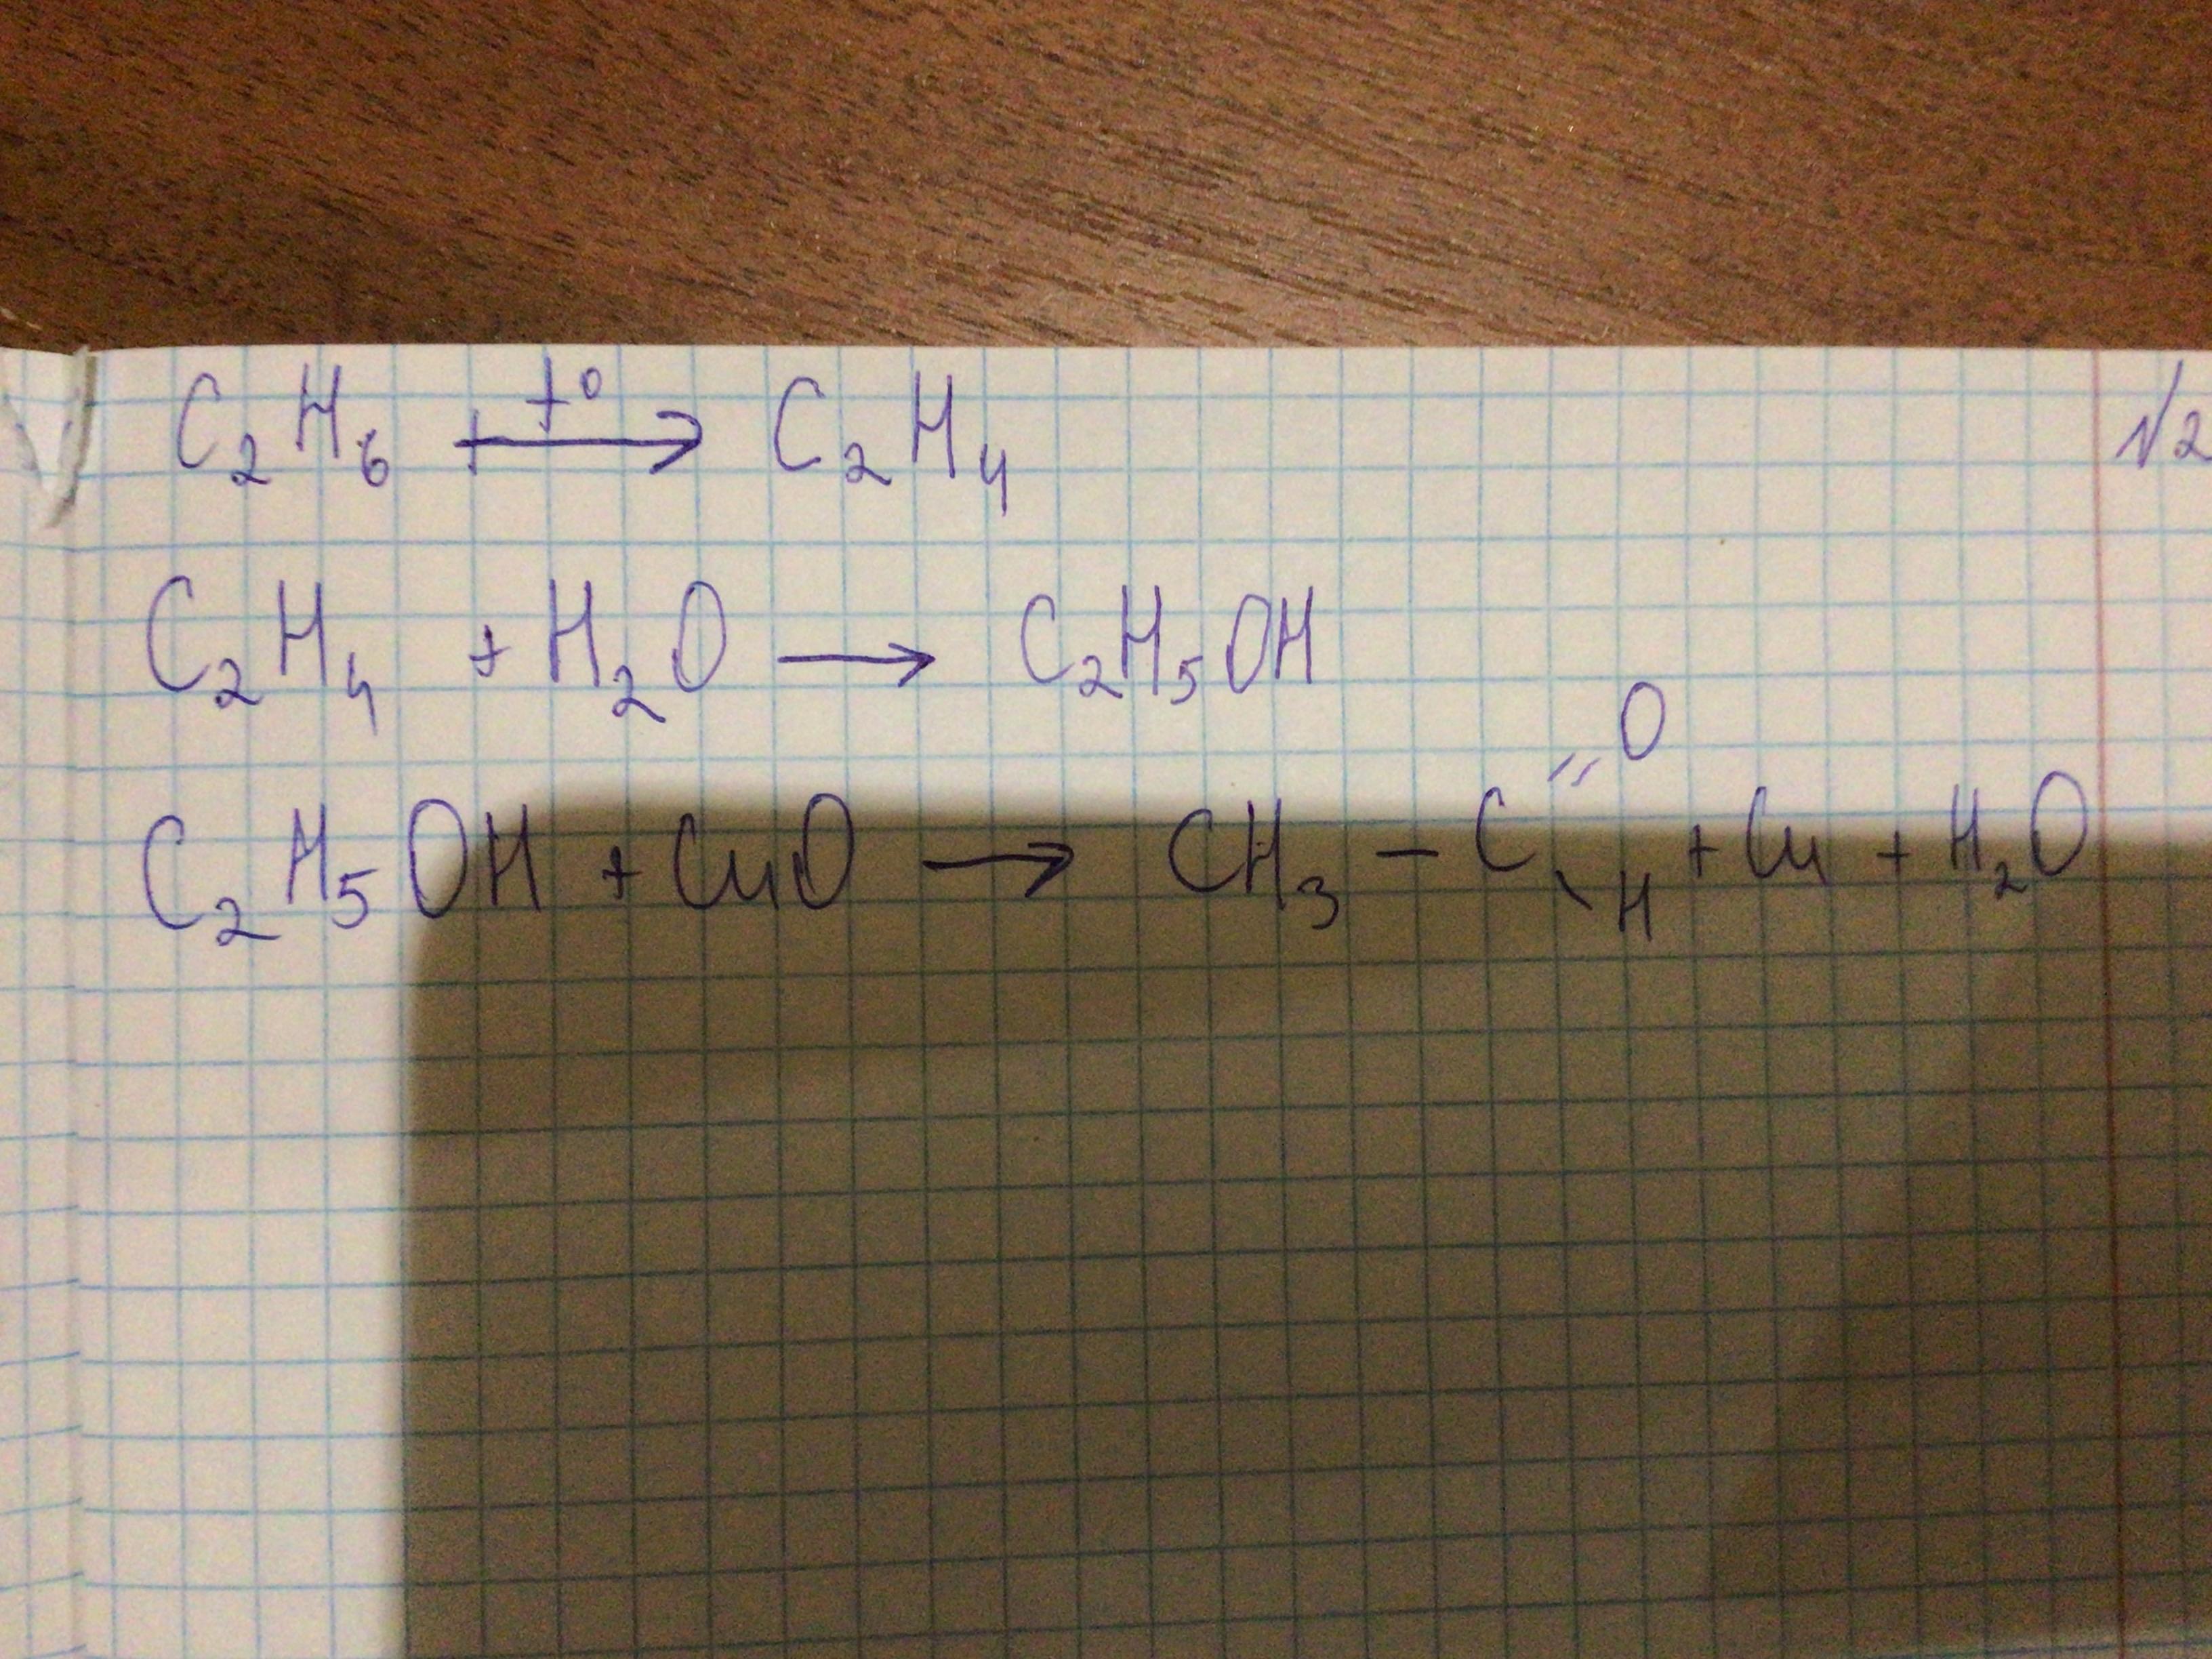 C₂H₆ +t°→ C₂H₄ √2
C₂H₄ + H₂O → C₂H₅OH
C₂H₅OH + CuO → CH₃ – C(=O)–H + Cu + H₂O